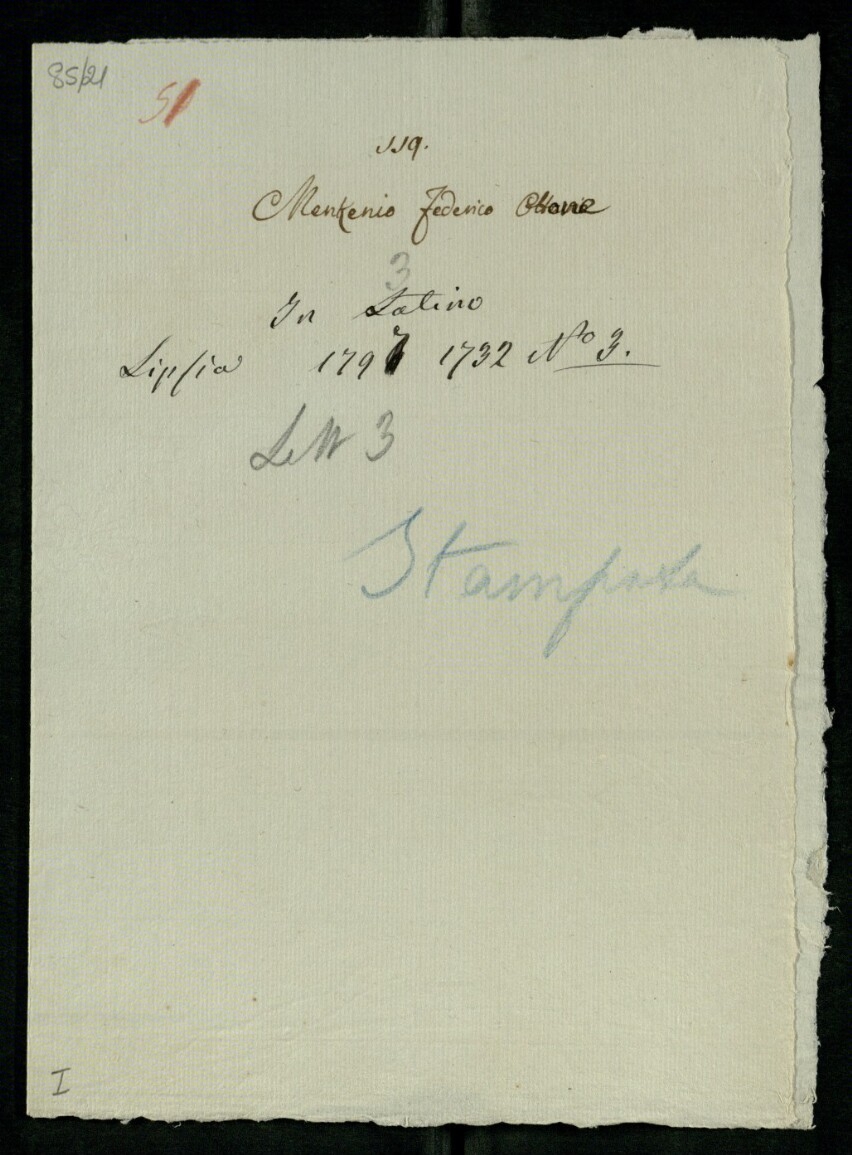 85/21
51
119.
Menkenio Federico Ottone
3
In Latino
Lipsia 1797 1732 Nº 3.
Lett 3
Stampata
I